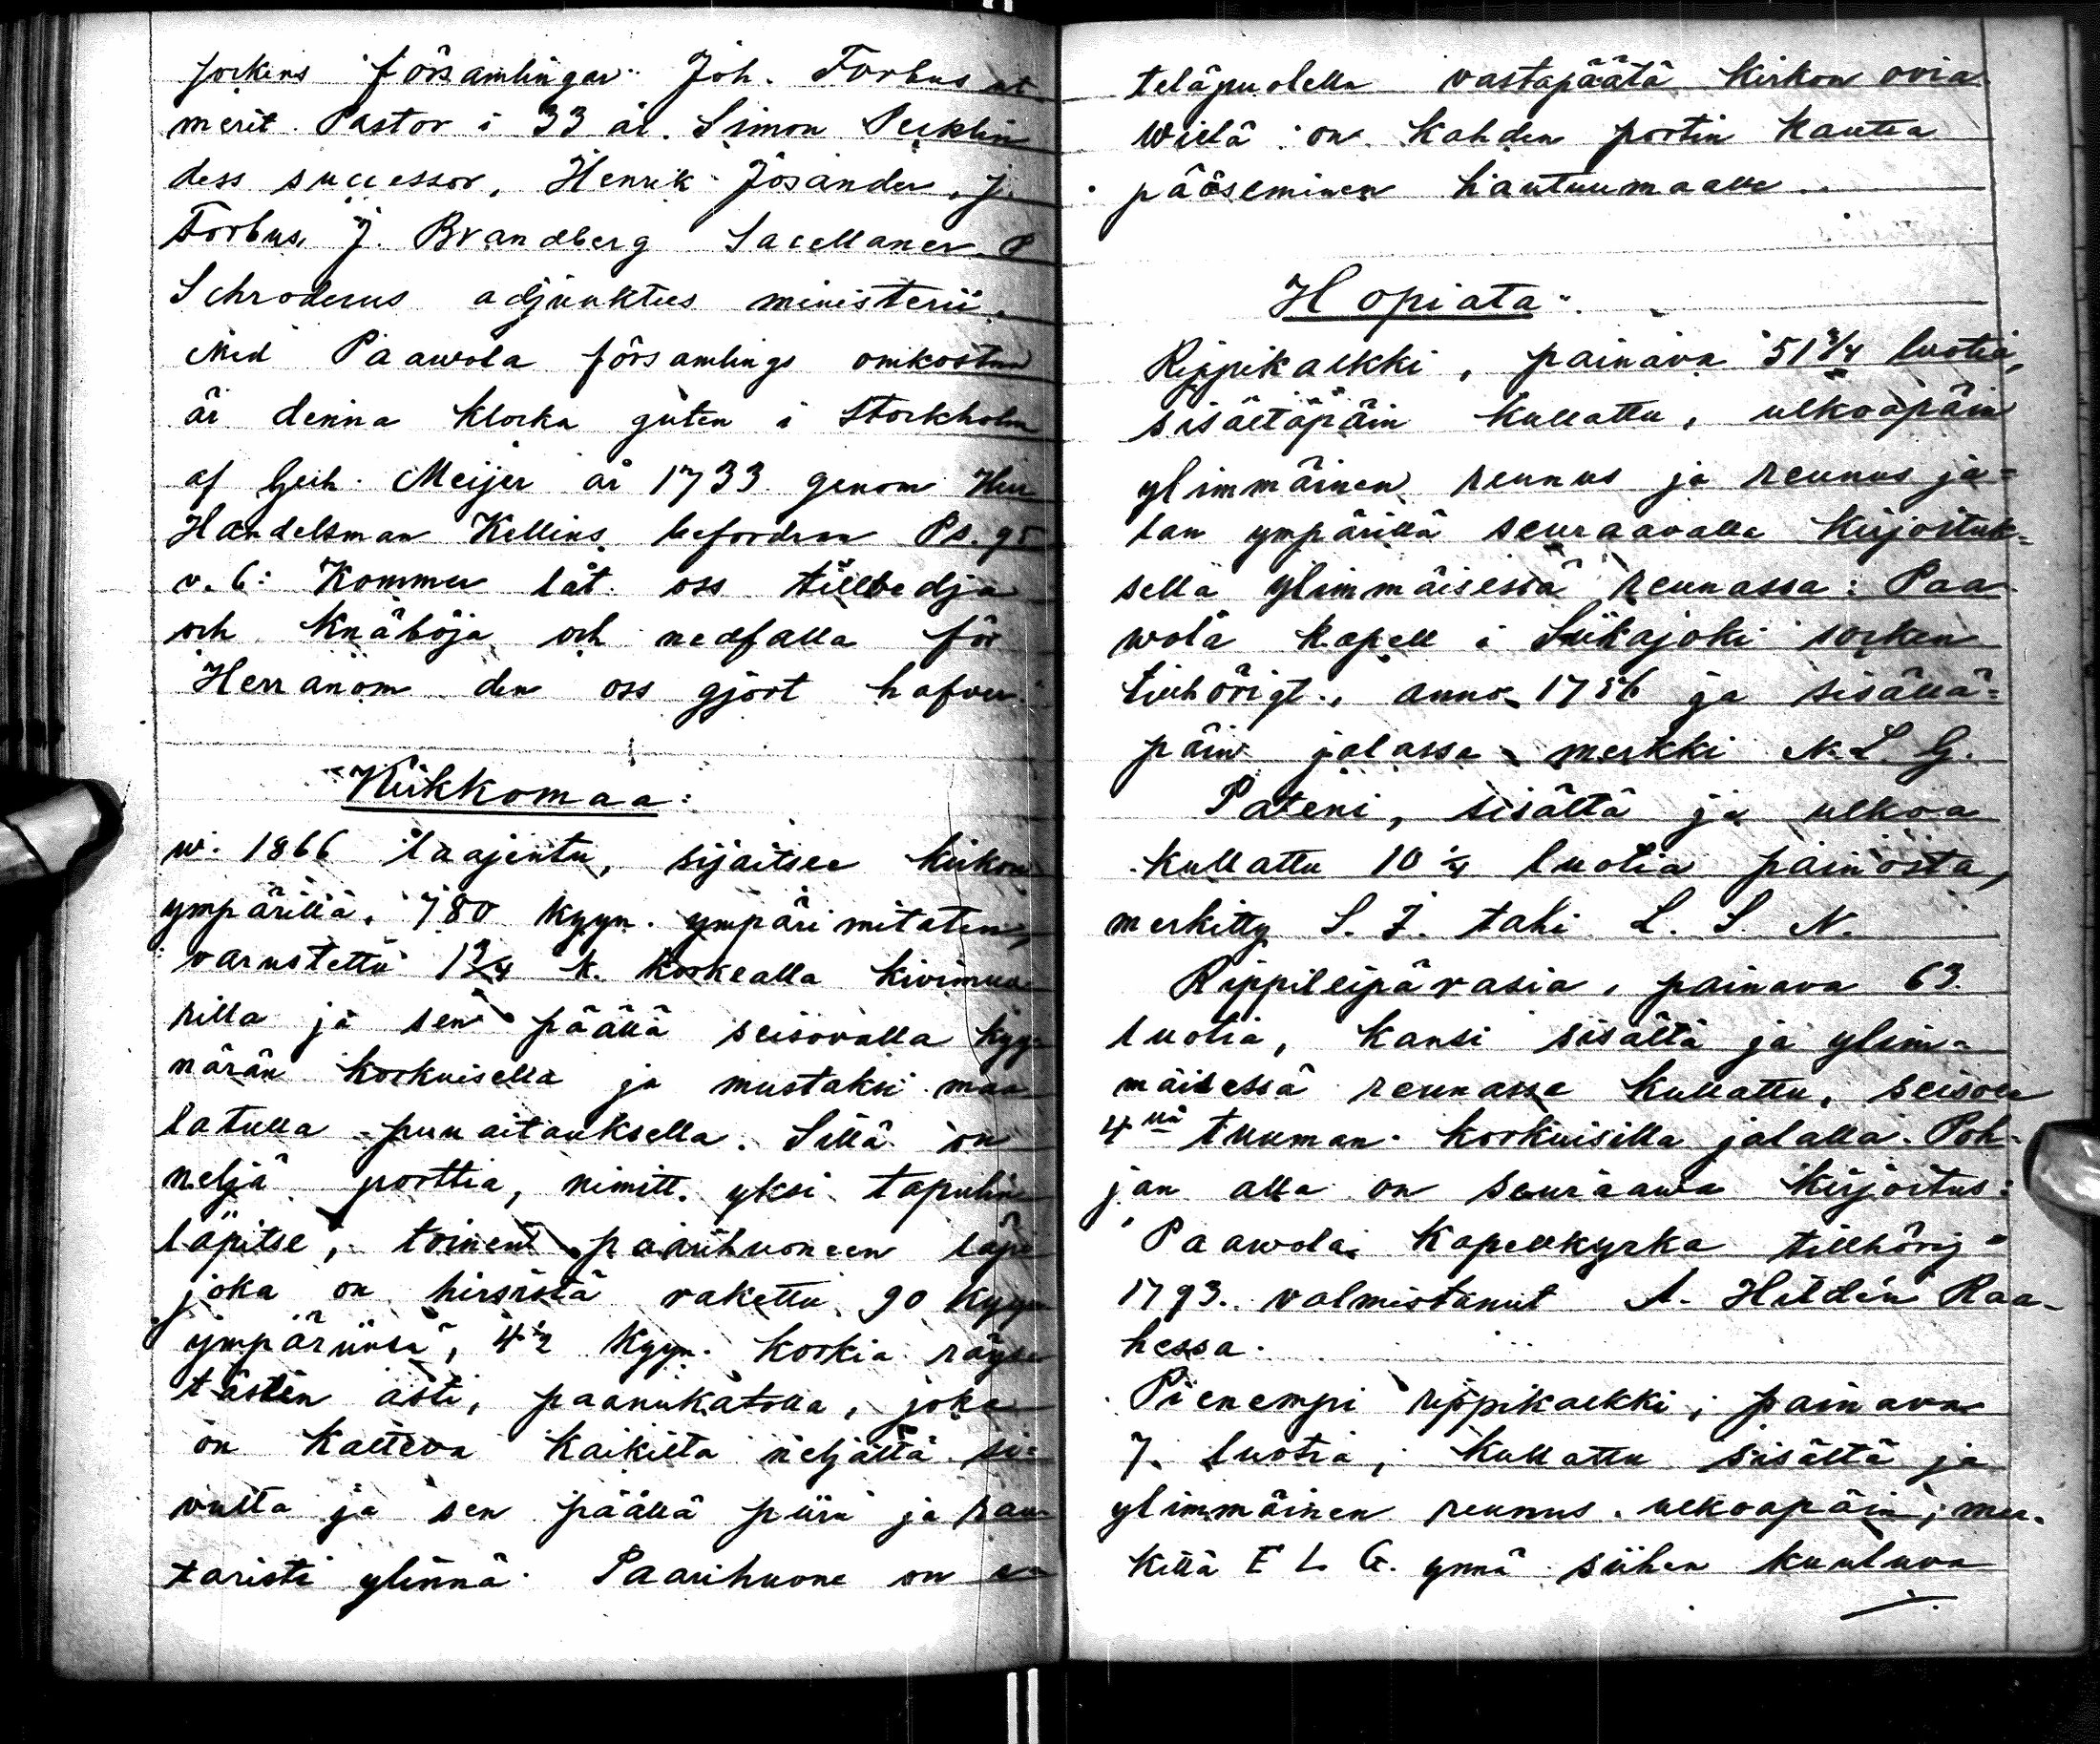 sockens församlingar. Joh. Forbus
merit. Pastor i 33 år. Simon
dess successor, Henrik Josander, J.
Forbus, J. Brandberg Sacellaner. P
Schroderus adjunktus ministerii.
Med Paawola församlings omkostnad
är denna klocka guten i Stockholm
af Gerh. Meijer år 1733 genom Herr
Handelsman Kellins befordran Ps. 95
v. 6: Kommer låt oss tillbedja
och knäböja och nedfalla för
Herranom den oss gjort hafver.
Kirkkomaa:
w. 1866 laajentu, sijaitsee kirkon
ympärillä, 780 kyyn. ympäri mitaten,
varustettu 1 3/4 k. korkealla kivimuu-
rilla ja sen päällä seisovalla kyy-
närän korkuisella ja mustaksi maa-
latulla puuaitauksella. Sillä on
neljä porttia, nimitt. yksi tapulin
läpitse, toinen paarihuoneen läpi
joka on hirsistä rakettu 90 kyyn
ympäriinsä, 4 1/2 kyyn. korkia räys-
täsiin asti, paanukatolla, joka
on kalteva kaikilta neljältä si-
vulta ja sen päällä piiru ja rau-
taristi ylinnä. Paarihuone on e-
teläpuolella vastapäätä kirkon ovia
Wielä on kahden portin kautta
pääseminen hautuumaalle.
Hopiata
Rippikalkki, painava 51 3/4 luotia,
sisältäpäin kullattu, ulkoapäin
ylimmäinen reunus ja reunus ja-
lan ympärillä seuraavalla kirjoituk-
sella ylimmäisessä reunassa: Paa-
wola kapell i Siikajoki socken
tillhörigt, anno 1756 ja sisällä-
päin jalassa merkki N. L. G.
Pateni, sisältä ja ulkoa
kullattu 10 1/4 luotia painosta,
merkitty S. J. tahi L. S. N.
Rippileipärasia, painava 63
luotia, kansi sisältä ja ylim-
mäisessä reunassa kullattu, seisoen
4llä tuuman korkuisilla jalalla. Poh-
jan alla on seuraawa kirjoitus:
"Paawola Kapellkyrka tillhörig"
1793. valmistanut A. Hildén Raa-
hessa.
Pienempi rippikalkki, painava
7 luotia, kullattu sisältä ja
ylimmäinen reunus ulkoapäin, mer-
killä E L G. ynnä siihen kuuluva